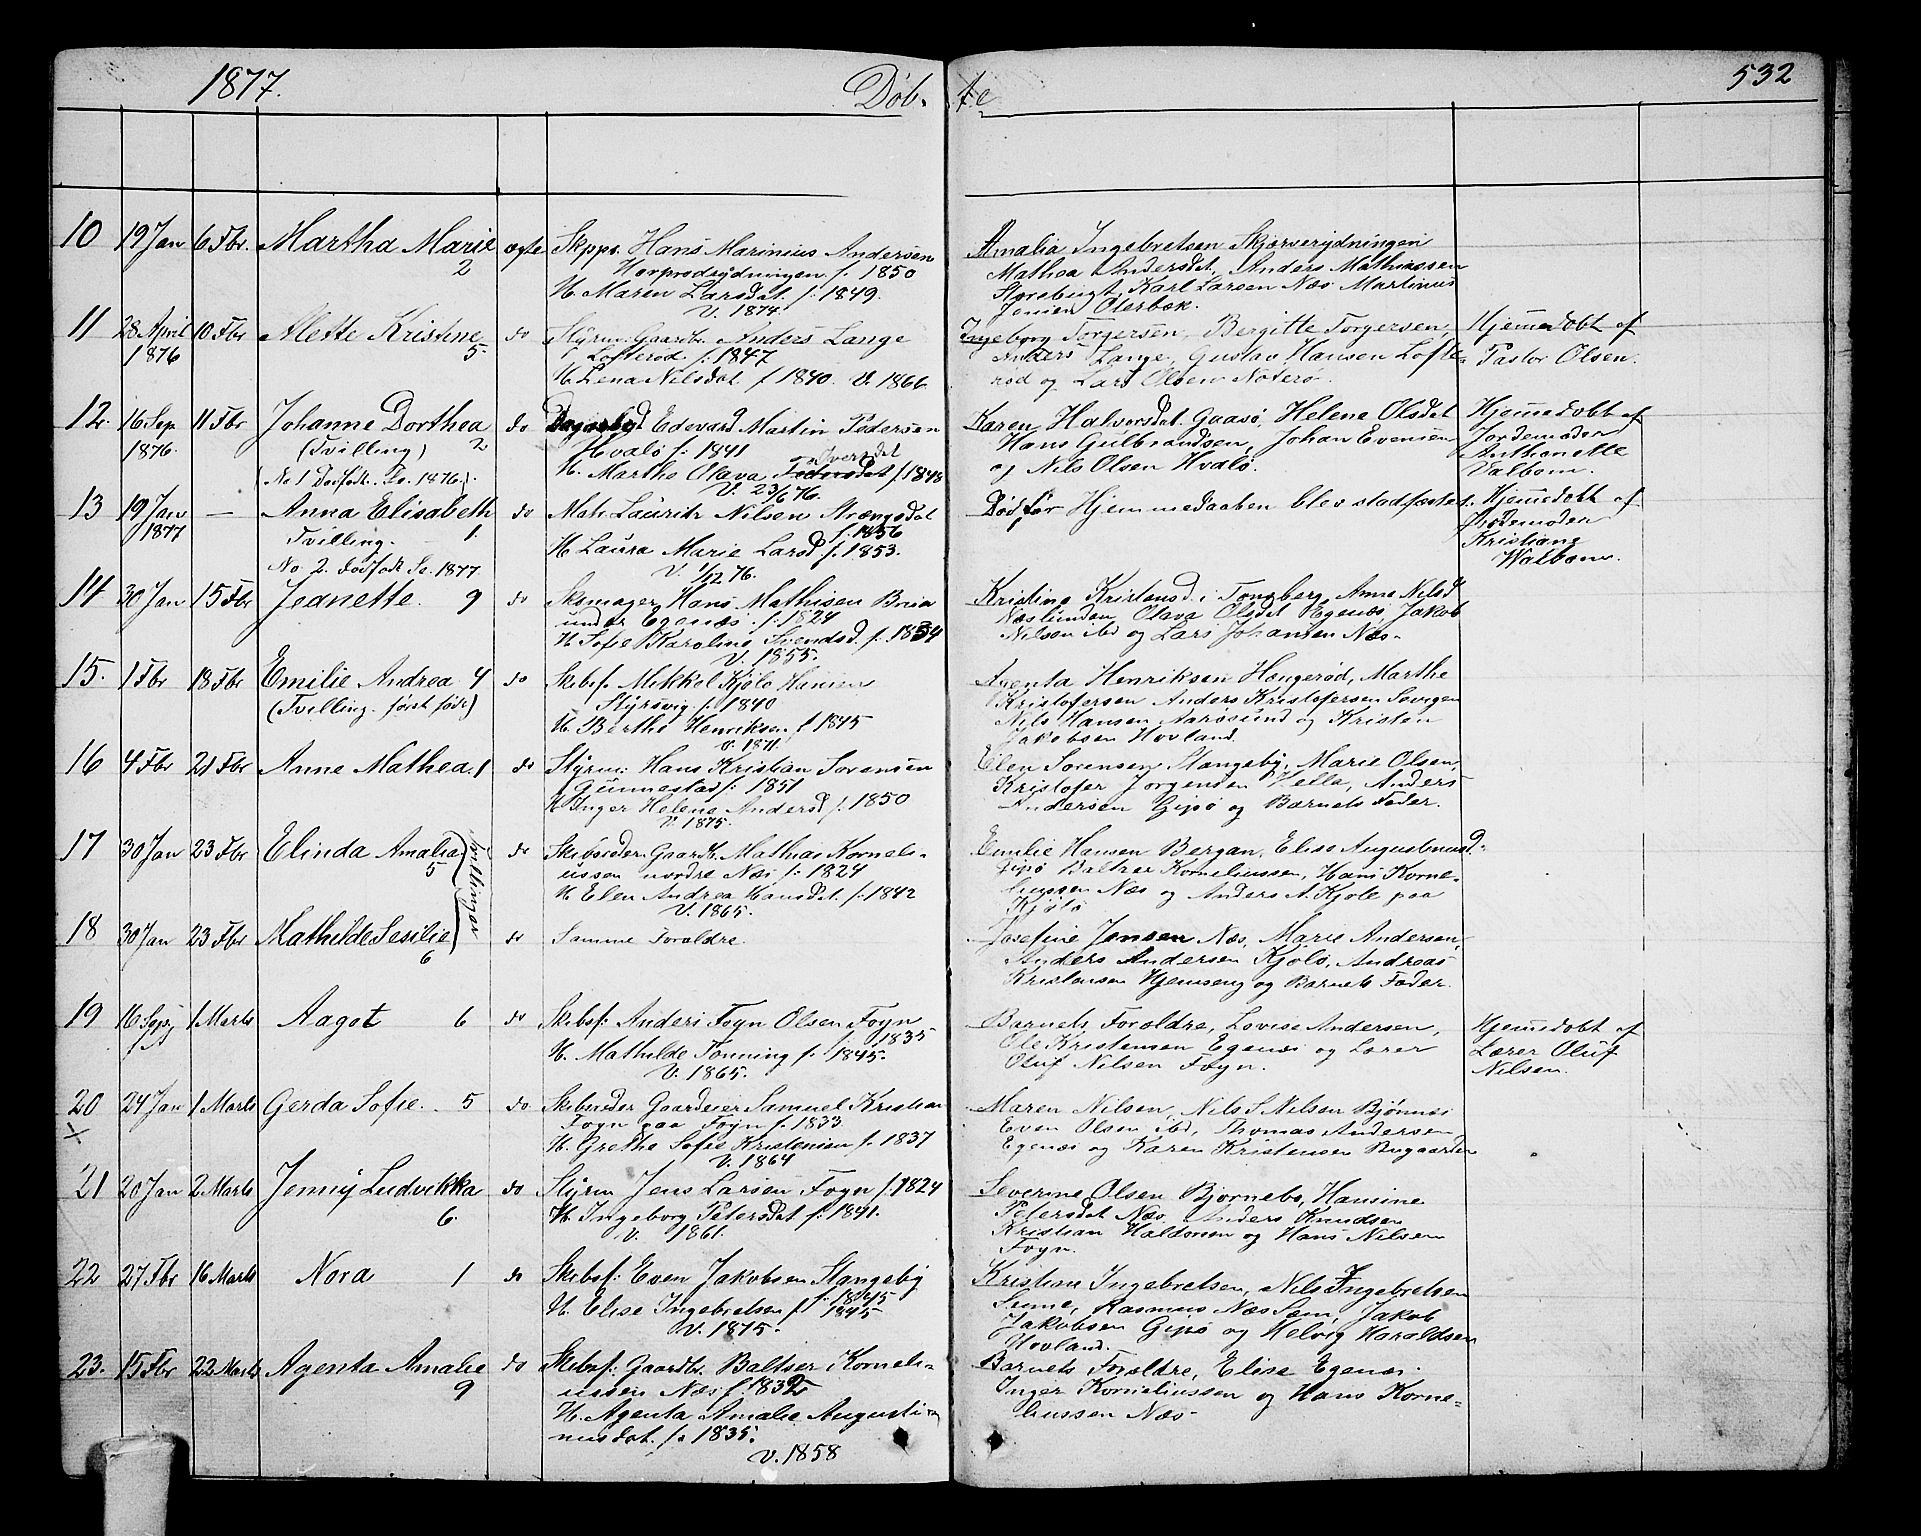 1877.
Døb-
te
532
10 19 Jan 6 Fbr. Martha Marie ægte Skpps. Hans Marinius Andersen
2 f. 1850
H. Maren Larsdat. f. 1849.
V. 1874.
Amalia Ingebretsen
Mathea Andersdat, Anders Mathiassen
Karl Larsen Næs Martinus
11 28 April 10 Fbr Alette Kristine do Styrm. Gaardbr. Anders Lange
1876 5. Lofterød f. 1847
H. Lena Nilsdat. f 1840. V. 1866.
Ingeborg Torgersen, Bergitte Torgersen,
Anders Lange, Gustav Hansen Lofte-
rød og Lars Olsen Noterø.
Hjemmedøbt af
Pastor Olsen.
12. 16 Sep. 11 Fbr Johanne Dorthea do Edevard Martin Pedersen
1876. (Tvilling) 2 Hvalø f. 1841
Iversdat
(No 1 Dødfødt. Se. 1876). H. Marthe Olava f. 1848
V. 23/6 76.
Karen Halvorsdat. Gaasø, Helene Olsdat
Hans Gulbrandsen, Johan Evensen
og Nils Olsen Hvalø.
Hjemmedøbt af
Jordemoder
Anthonette
Valbom.
13 19 Jan — Anna Elisabeth do Mat. Lauritz Nilsen
1877 Tvilling. 1. f. 1856
H. Laura Marie Larsd f. 1853.
No 2. dødfødt Se. 1877. V. 1/12 76.
Død før Hjemmedaaben blev stadfæstet.
Hjemmedøbt af
Jordemoder
Kristiane
Walbom.
14 30 Jan 15 Fbr Jeanette. 9 do Skomager Hans Mathisen
under Egenæs. f. 1824
H. Sofie Karoline Svendsd. f. 1834
V. 1855.
Kristine Kristensd. i Tønsberg, Anne Nilsd
Næslunden Olava Olsdat Egenæs, Jakob
Nilsen ibd og Lars Johansen Næs-
15. 1 Fbr 18 Fbr Emilie Andrea 4 do Skibsf. Mikkel Kjølø Hansen
(Tvilling. først født) Styrsvig f. 1840
H. Berthe Henriksen f 1845
V. 1871.
Agenta Henriksen Hængerød, Marthe
Kristofersen Anders Kristofersen
Nils Hansen Narøsund og Kristen
Jakobsen Hovland.
16 4 Fbr 21 Fbr Anne Mathea. 1 do Styrm: Hans Kristian Sørensen
Gunnestad f. 1851
H Inger Helene Andersd f. 1850
V. 1875.
Elen Sørensen Stangeby, Marie Olsen,
Kristofer Jørgensen Hella, Anders
Andersen Gipø og Barnets Fader.
17 30 Jan 23 Fbr Elinda Amalia do Skibsreder Gaardb. Mathias Kornels-
5 iussen nordre Næs f. 1824
H Elen Andrea Hansdat. f. 1842
V. 1865.
Tvillinger
Emilie Hansen Bergan, Elise Augustinusd-
Gipø Baltzer Korneliussen, Hans Korne-
liussen Næs og Anders A. Kjøle paa
Kjølø
18 30 Jan 23 Fbr Mathilde Sesilie do Samme Forældre.
6
Josefine Jensen Næs, Marie Andersen,
Anders Andersen Kjølø, Andreas
Kristensen Hjemseng og Barnets Fader.
19 16 1 Marts Aagot 6 do Skibsf: Anders Føyn Olsen Føyn
1835
H. Mathilde Tønning f. 1845.
V. 1865.
Barnets Forældre, Lovise Andersen,
Ole Kristensen Egenæs og Lærer
Oluf Nilsen Føyn.
Hjemmedøbt af
Lærer Oluf
Nilsen.
20 24 Jan 1 Marts Gerda Sofie. 5 do Skibsreder Gaardeier Samuel Kristian
× Føyn paa Føyn f. 1833
H. Grethe Sofie Kristensen f. 1837
V. 1864
Maren Nilsen, Nils S Nilsen Bjønnes
Even Olsen ibd, Thomas Andersen
Egenæs og Karen Kristensen Bugaarden
21 20 Jan 2 Marts Jenny Ludvikka do Styrm Jens Larsen Føyn f. 1824
6. H. Ingeborg Petersdat f. 1841.
V. 1861.
Severine Olsen Bjørnebo, Hansine
Petersdat Næs, Anders Knudsen
Kristian Haldorsen og Hans Nilsen
Føyn.
22 27 Fbr 16 Marts Nora 1 do Skibsf: Even Jakobsen Stangeby
f. 1845
H. Elise Ingebretsen f. 1845
V. 1875.
Kristine Ingebretsen, Nils Ingebretsen
Rasmus Næs Sem, Jakob
Jakobsen Gipø og Helvig Haraldsen
Hovland.
23. 15 Fbr 22 Marts Agenta Amalie do Skibsf: Gaardbr. Baltser Kornels-
9 iussen Næs f. 1832
H. Agenta Amalie Augusti-
nusdat. f. 1835.
V. 1858
Barnets Forældre, Elise Egenæs
Inger Korneliussen og Hans Korne-
liussen Næs-